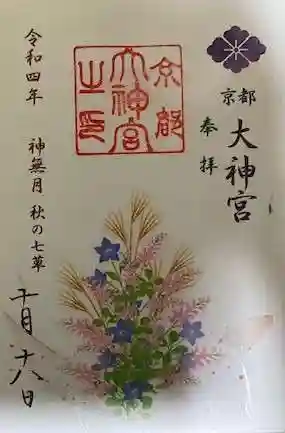 京都
大神宮
奉拝
京都
大神宮
之印
令和四年
神無月 秋の七草
十月十八日